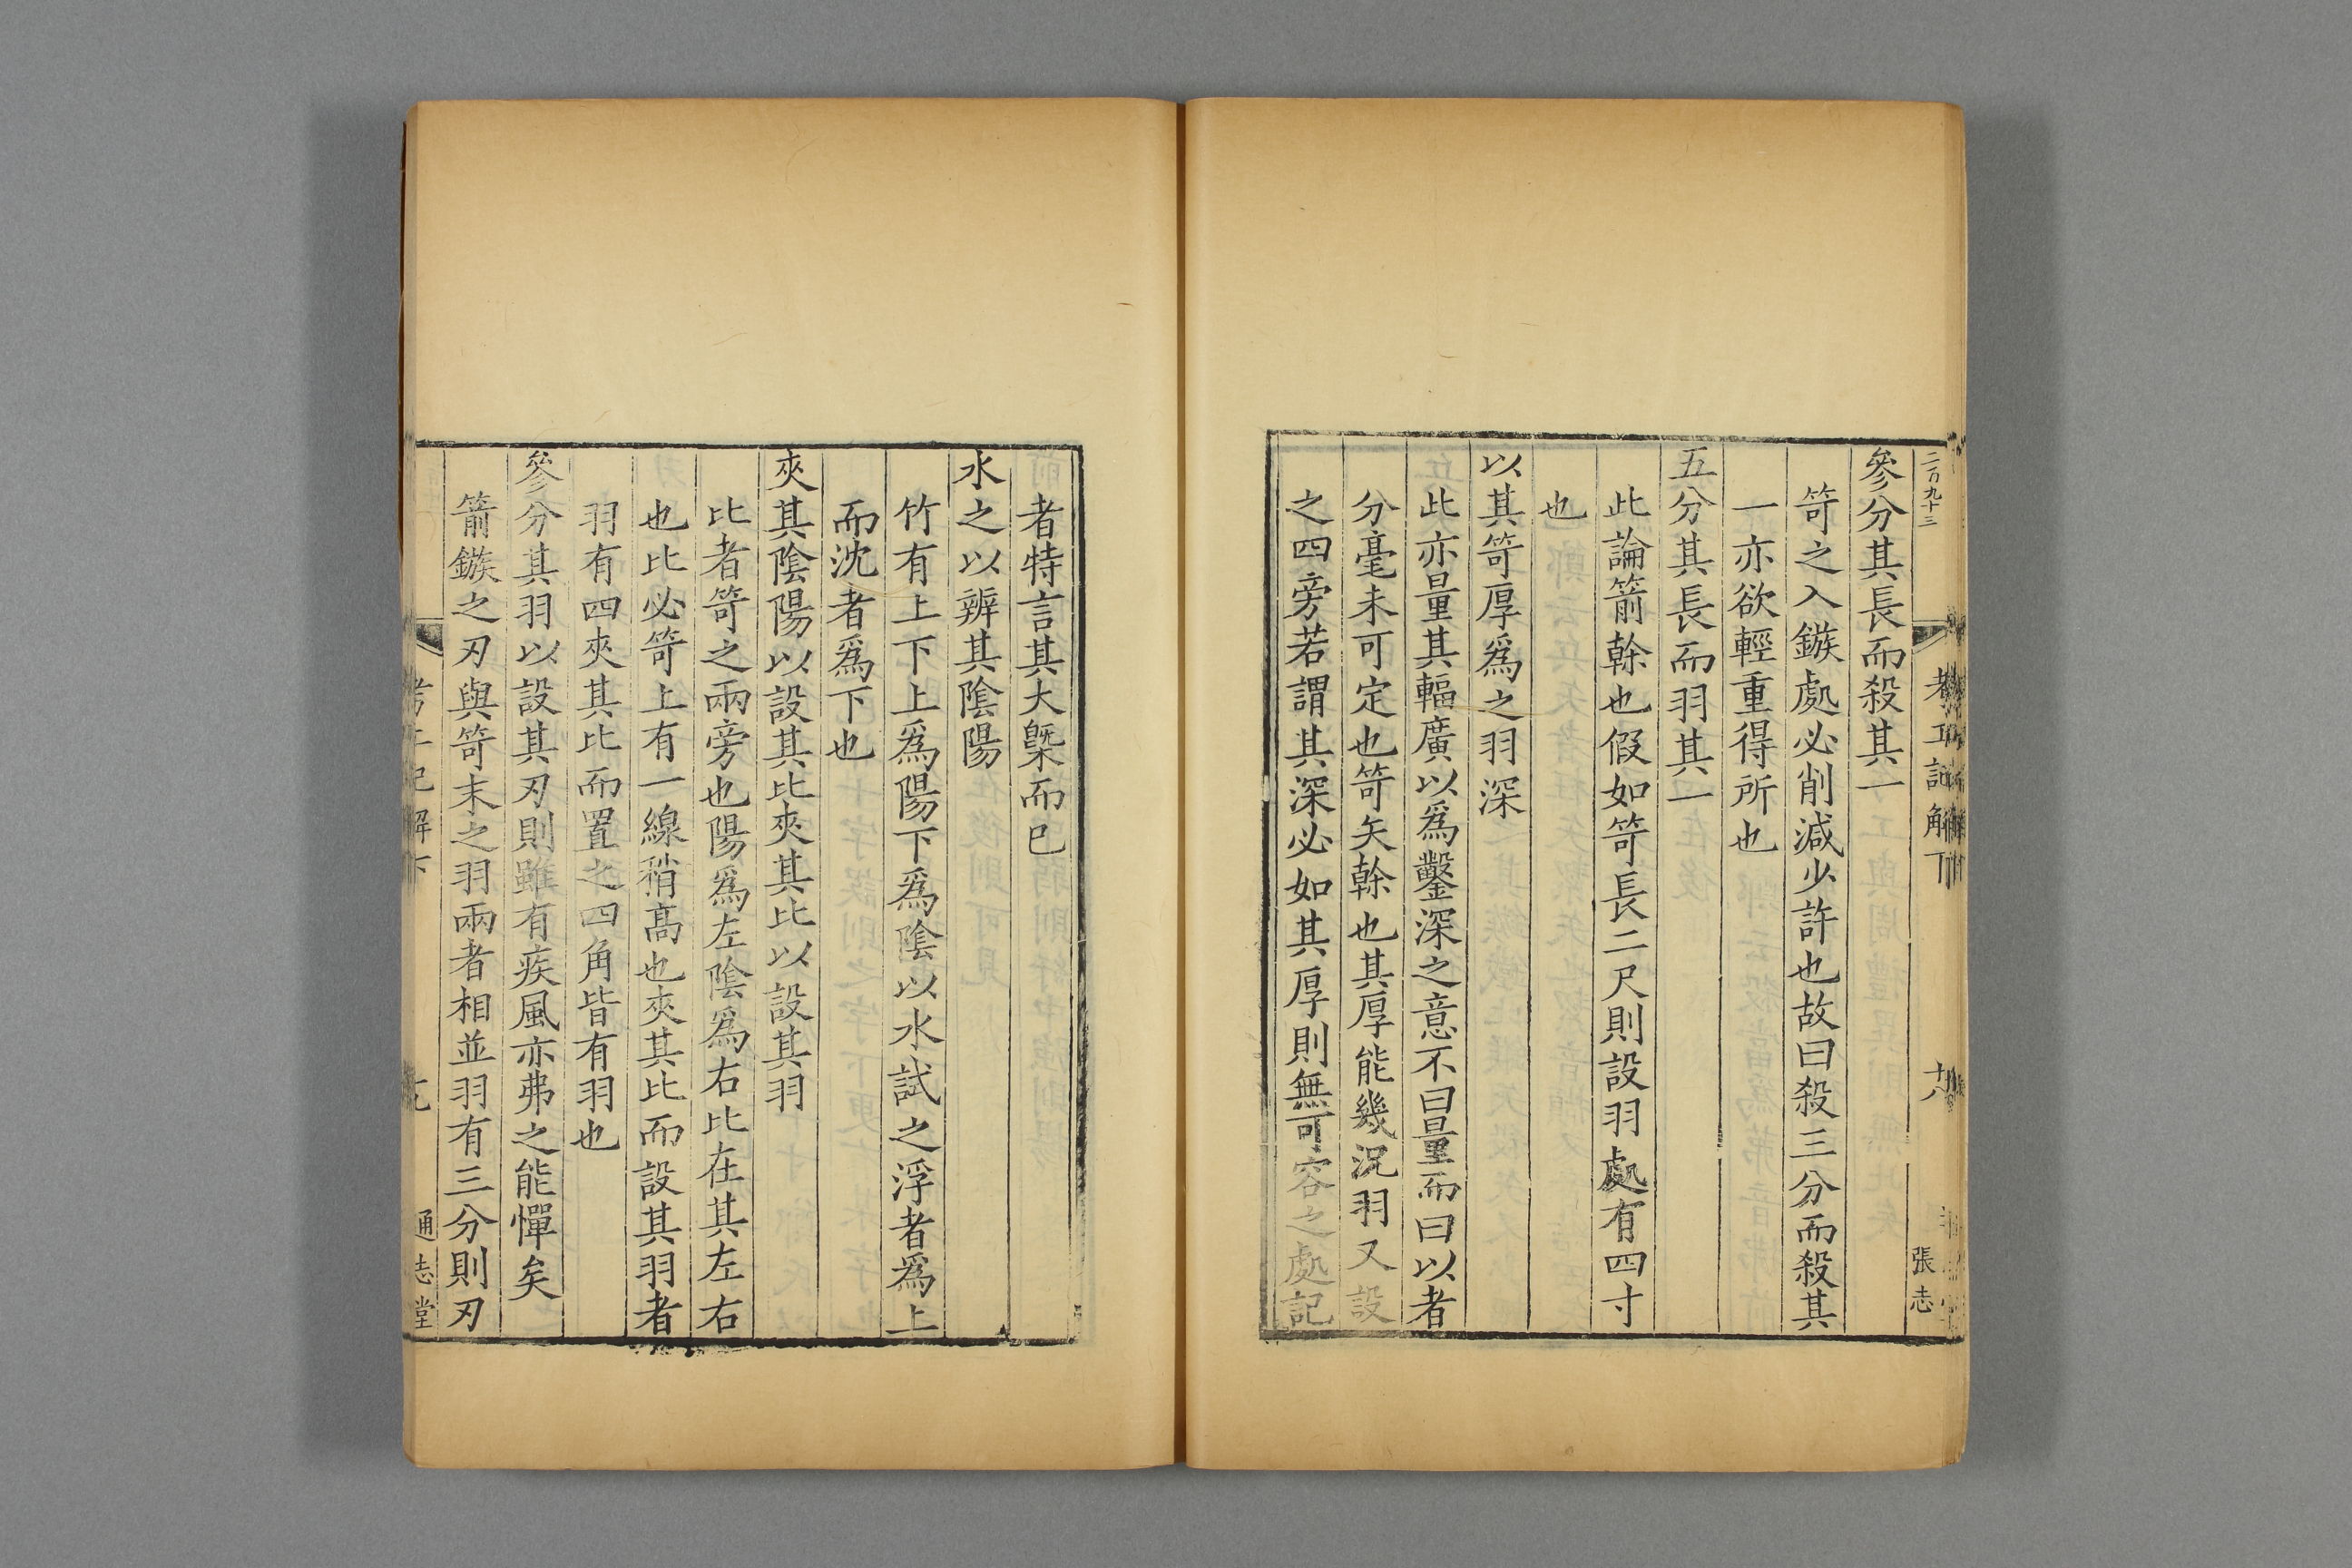 二百九十三
考工記解下
十八
張志
參分其長而殺其一
笴之入鏃處必削減少許也故曰殺三分而殺其
一亦欲輕重得所也
五分其長而羽其一
此論箭榦也假如笴長二尺則設羽處有四寸
也
以其笴厚爲之羽深
此亦量其輻廣以爲鑿深之意不曰量而曰以者
分毫未可定也笴矢榦也其厚能幾況羽又設
之四旁若謂其深必如其厚則無可容之處記
者特言其大槩而已
水之以辨其陰陽
竹有上下上爲陽下爲陰以水試之浮者爲上
而沈者爲下也
夾其陰陽以設其比夾其比以設其羽
比者笴之兩旁也陽爲左陰爲右比在其左右
也比必笴上有一線稍高也夾其比而設其羽者
羽有四夾其比而置之四角皆有羽也
參分其羽以設其刃則雖有疾風亦弗之能憚矣
箭鏃之刃與笴末之羽兩者相並羽有三分則刃
考工記解下
通志堂